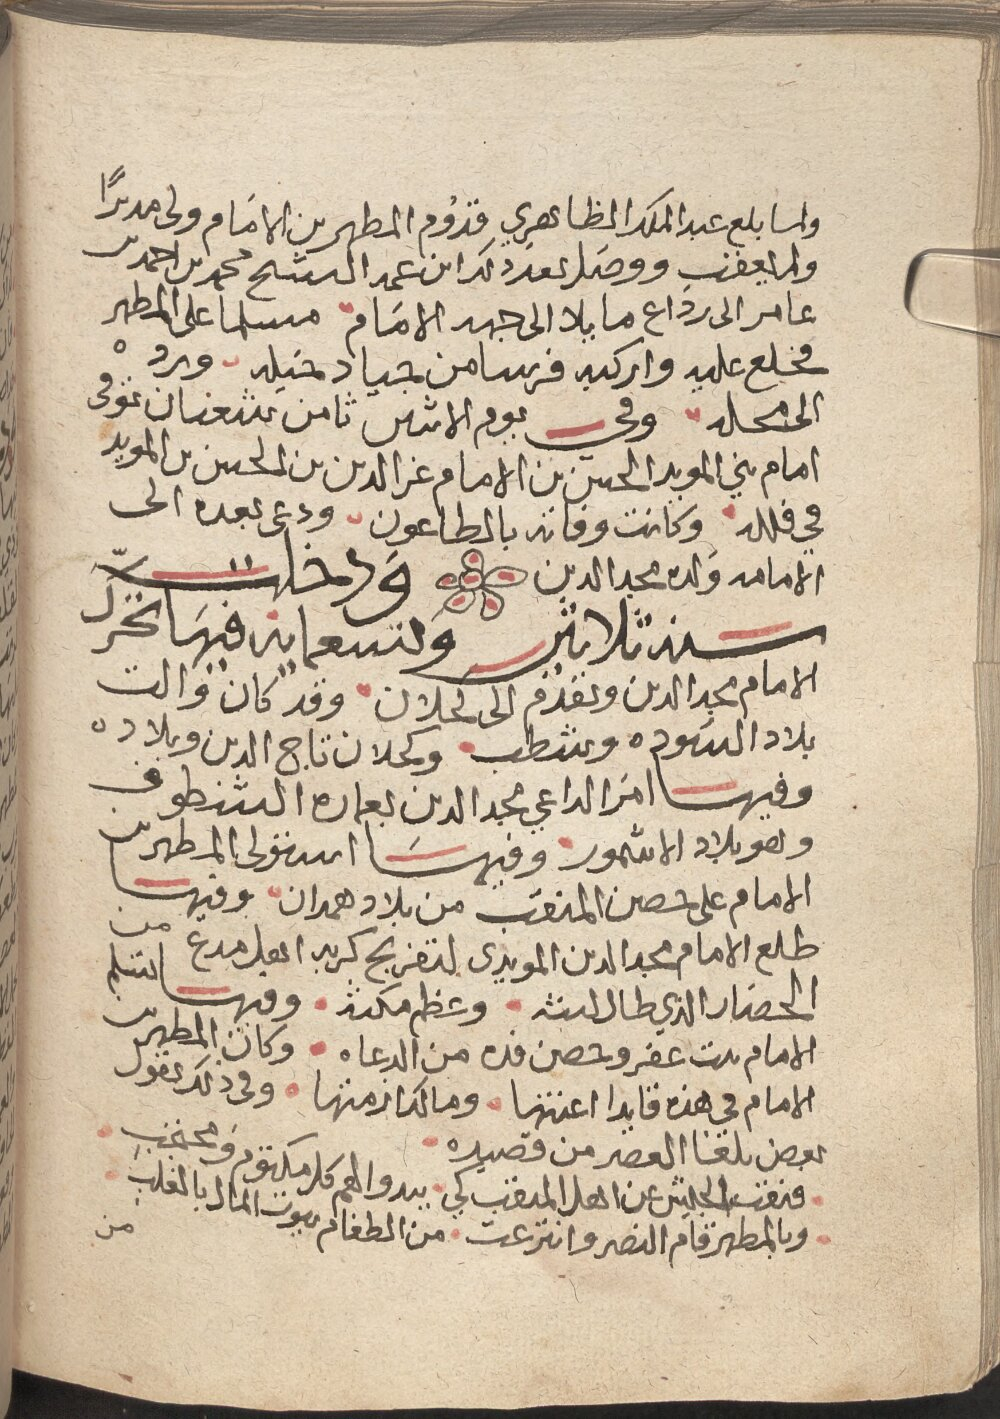 ولما بلغ عبد الملك الظاهري قدوم المطهر بن الامام ولى مدبرًا
ولم يعقب ووصل بعد ذلك ابن عمه الشيخ محمد بن احمد بن
عامر الى رداع ما يلا الى جهة الامام مسلما على المطهر
فخلع عليه واركبه فرسا من جياد خيله ورده
الى محله وفي يوم الاثنين ثامن شعبان توفى
امام بني المويد الحسن بن الامام عز الدين بن الحسن بن المويد
في فلله وكانت وفاته بالطاعون ودعى بعده الى
الامامه ولده مجد الدين ودخلت
سنة ثلاثين وتسعمايه فيها تحرك
الامام مجد الدين وتقدم الى كحلان وقد كان والت
بلاد السوده وشطب وكحلان تاج الدين وبلاده
وفيها امر الداعي مجد الدين بعماره الشظوف
وهو بلاد الاشمور وفيها استولى المطهر بن
الامام على حصن المنقب من بلاد همدان وفيها
طلع الامام مجد الدين المويدى لتفريج كربه اهل مدع من
الحصار الذي طال لبثه وعظم مكثه وفيها استلم
الامام بيت عفر وحصن فده من الدعاه وكان المطهر بن
الامام في هذه قايدا اعنتها ومالكا ازمتها وفي ذلك يقول
بعض بلغا العصر من قصيده
فنقب الجيش عن اهل المنقب كي يبدو الهم كل مكتوم ومحتجب
وبالمطهر قام النصر وانتزعت من الطغام بيوت المال بالغلب
من